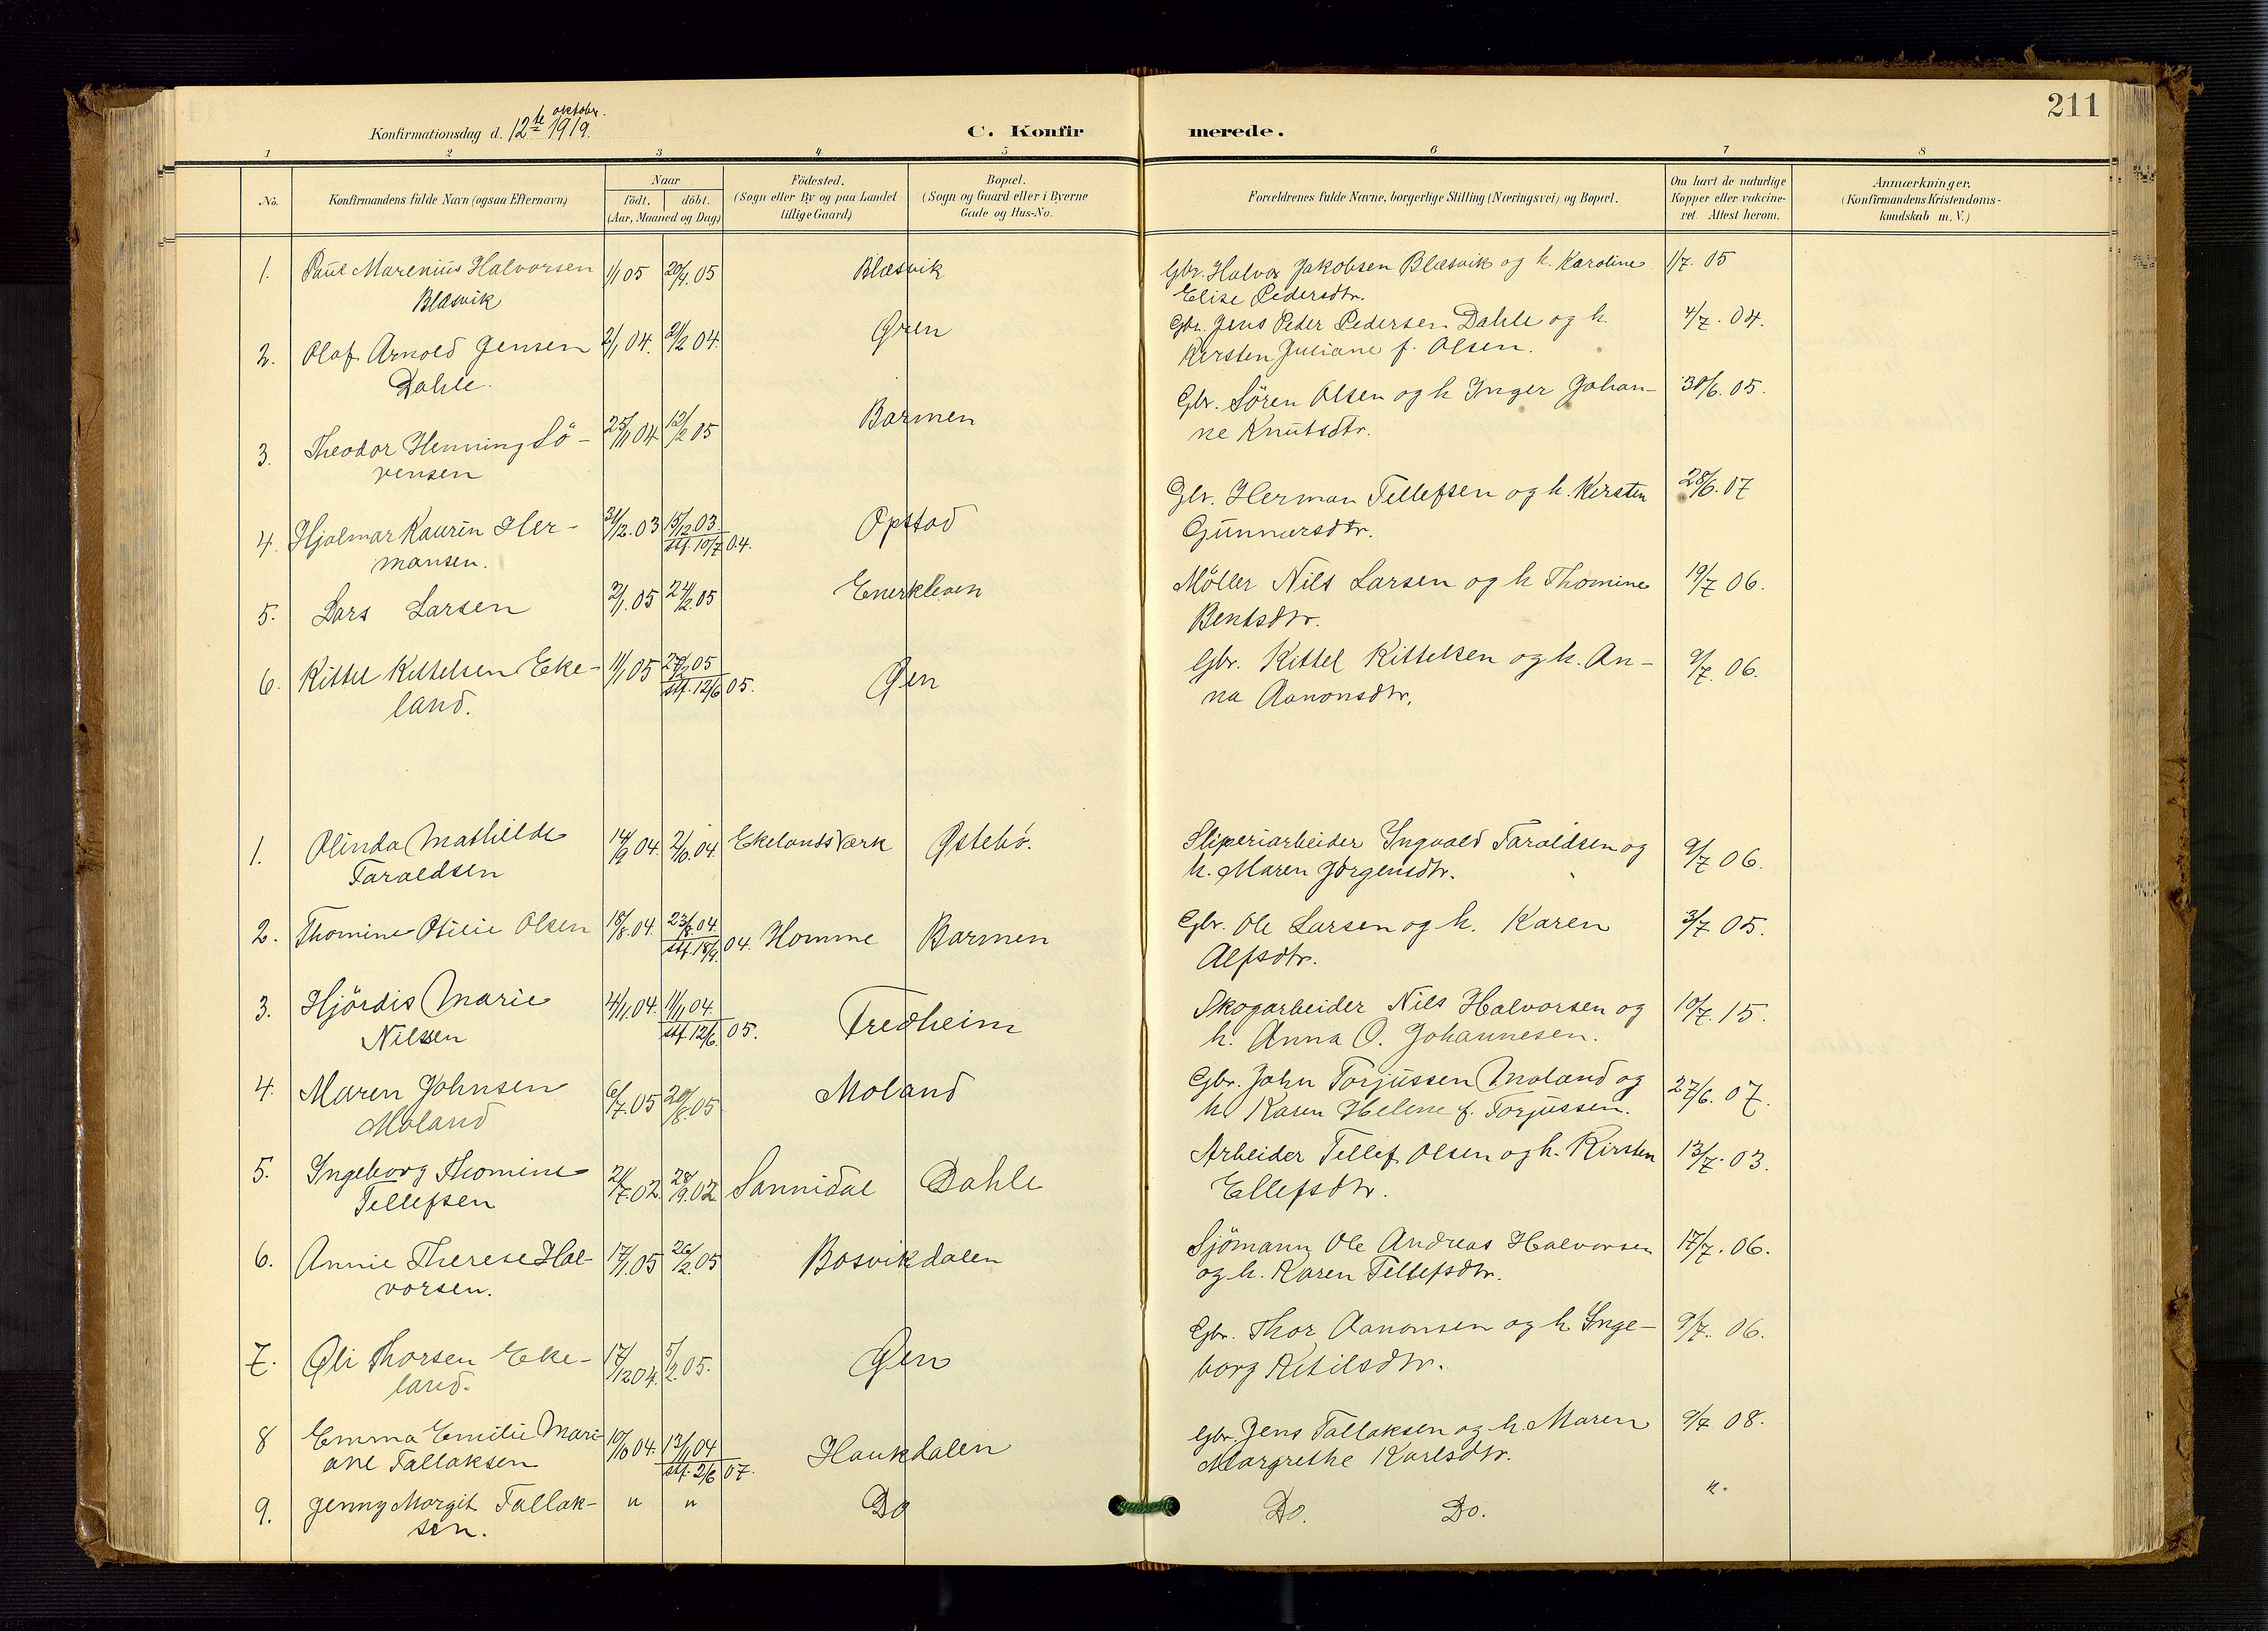 211
Konfirmationsdag d. 12te oktobr. 1919.
C. Konfirmerede.
1 2 3 4 5 6 7 8
No.
Konfirmandens fulde Navn (ogsaa Efternavn)
Naar
födt. döbt.
(Aar, Maaned og Dag)
Födested.
(Sogn eller By og paa Landet
tillige Gaard)
Bopæl.
(Sogn og Gaard eller i Byerne
Gade og Hus-No.
Forældrenes fulde Navne, borgerlige Stilling (Næringsvei) og Bopæl.
Om havt de naturlige
Kopper eller vakcine-
ret. Attest herom.
Anmærkninger.
(Konfirmandens Kristendoms-
kundskab m. V.)
1. Paul Marenius Halvorsen 1/1 05 20/4. 05 Blæsvik Gbr. Halvor Jakobsen Blæsvik og h. Karoline 1/7 05
Blæsvik Elise Pedersdtr.
2. Olaf Arnold Jensen 2/1 04. 21/2 04. Øren Gbr. Jens Peder Pedersen Dahle og h. 4/7. 04.
Dahle. Kirsten Juliane f. Olsen.
3. Theodor Henning Sö- 25/11 04 12/2 05 Barmen Gbr. Sören Olsen og h Inger Johan- 30/6. 05.
rensen ne Knutsdtr.
4. Hjalmar Kaurin Her- 31/12. 03 15/12 03. Opstad Gbr. Herman Tellefsen og h. Kirsten 28/6. 07
mansen. stf. 10/7 04. Gunnarsdtr.
5. Lars Larsen 2/1. 05 24/2. 05 Enerkleven Møller Nils Larsen og h Thomine 19/7 06.
Bentsdtr.
6. Kittel Kittelsen Eke- 11/1 05 27/2 05 Øen Gbr. Kittel Kittelsen og h. An- 9/7. 06.
land. stf. 12/6 05. na Aanonsdtr.
1. Olinda Mathilde 14/9 04. 2/10. 04. Ekelands Værk Østebø. Sliperiarbeider Ingvald Taraldsen og 9/7 06.
Taraldsen h. Maren Jørgensdtr.
2. Thomine Otilie Olsen 18/8. 04. 23/8. 04. Homme Barmen Gbr. Ole Larsen og h. Karen 3/7 05.
stf. 18/9. 04. Alfsdtr.
3. Hjördis Marie 4/11. 04. 11/11 04. Fredheim Skogarbeider Nils Halvorsen og 10/7. 15.
Nilsen stf. 12/6. 05. h. Anna O. Johannesen.
4. Maren Johnsen 6/7. 05 20/8. 05 Moland Gbr. John Torjussen Moland og 27/6. 07.
Moland h. Karen Helene f. Torjussen.
5. Ingeborg Thomine 21/7. 02. 28/9. 02 Sannidal Dahle Arbeider Tellef Olsen og h. Kirsten 13/7. 03.
Tellefsen Ellefsdtr.
6. Annie Therese Hal- 17/1. 05 26/2. 05 Bosvikdalen Sjömann Ole Andreas Halvorsen 17/7. 06.
vorsen. og h. Karen Tellefsdtr.
7. Øli Thorsen Eke- 17/12 04. 5/2. 05. Øen Gbr. Thor Aanonsen og h Inge- 9/7. 06.
land. borg Ketilsdtr.
8 Emma Emilie Mari- 10/10 04. 13/11 04 Haukdalen Gbr. Jens Tallaksen og h. Maren 9/7 08.
ane Tallaksen stf. 2/6 07. Margrethe Karlsdtr.
9. Jenny Margit Tallak- " " Do Do. Do. ".
sen.